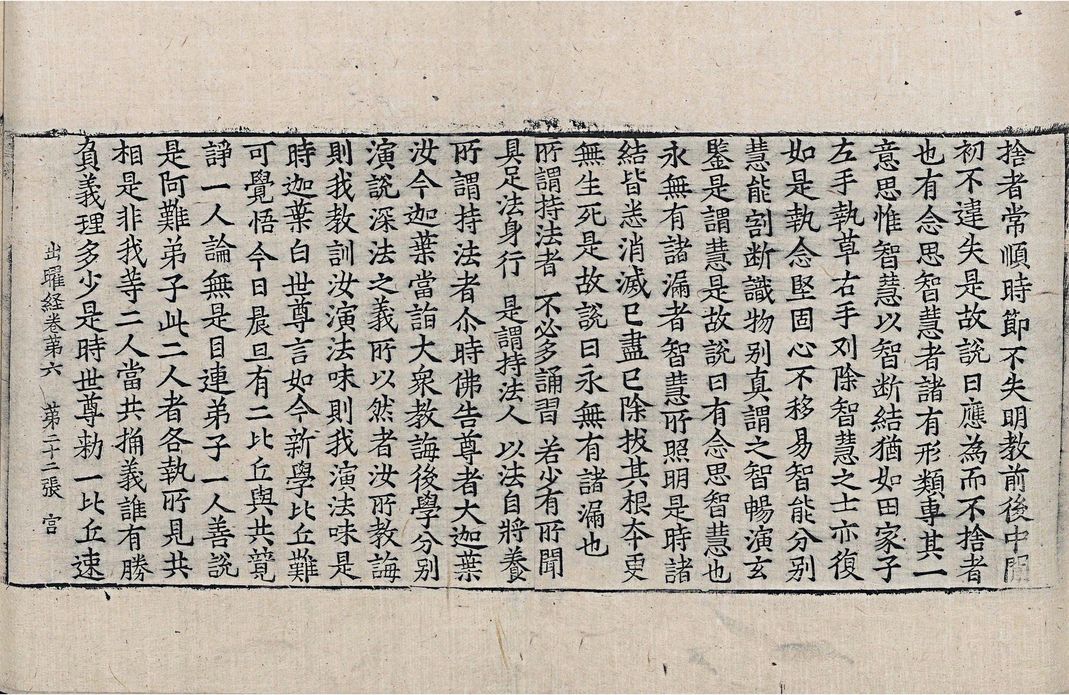 捨者常順時節不失明教前後中間
初不違失是故說曰應為而不捨者
也有念思智慧者諸有形類專其一
意思惟智慧以智断結猶如田家子
左手執草右手刈除智慧之士亦復
如是執念堅固心不移易智能分别
慧能割断識物别真謂之智暢演玄
鑒是謂慧是故說曰有念思智慧也
永無有諸漏者智慧所照明是時諸
結皆悉消滅已盡已除拔其根夲更
無生死是故說曰永無有諸漏也
所謂持法者 不必多誦習 若少有所聞
具足法身行 是謂持法人 以法自將養
所謂持法者尒時佛告尊者大迦葉
汝今迦葉當詣大衆教誨後學分别
演說深法之義所以然者汝所教誨
則我教訓汝演法味則我演法味是
時迦葉白世尊言如今新學比丘難
可覺悟今日晨旦有二比丘與共競
諍一人論無是目連弟子一人善說
是阿難弟子此二人者各執所見共
相是非我等二人當共捔義誰有勝
負義理多少是時世尊勑一比丘速
出曜経卷第六 第二十二張 宫